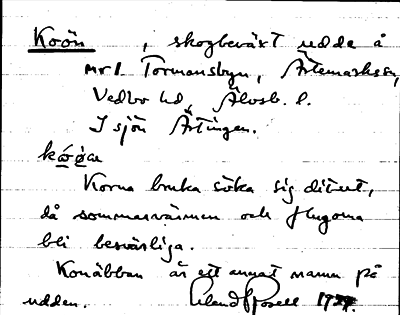 Koön , skogbeväxt udde å
nr 1. Tormansbyn, Ärtemarks sn,
Vedbo hd, Älvsb. l.
I sjön Ärtingen.
kọ́ọ̀a
Korna bruka söka sig ditut,
då sommarvärmen och flugorna
bli besvärliga.
Konäbban är ett annat namn på
udden. Erland Rosell